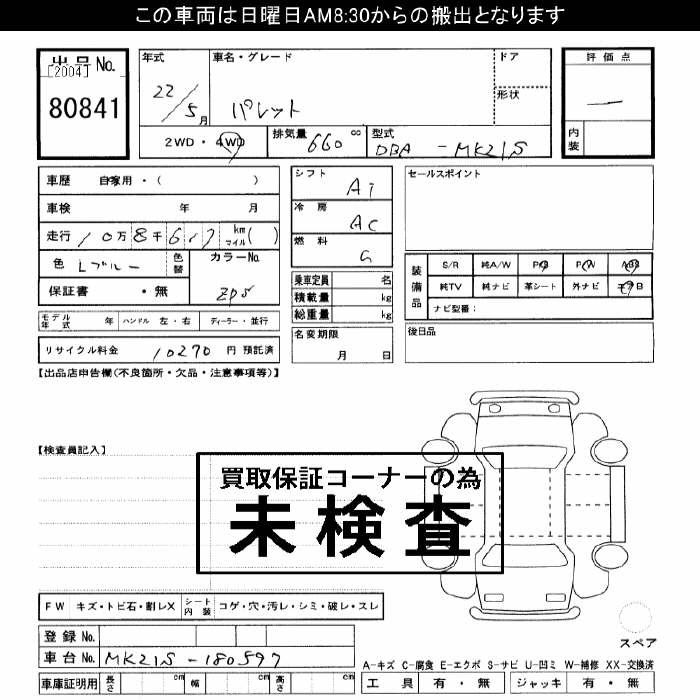 この車両は日曜日AM8:30からの搬出となります
出品No.
[2004]
80841
年式
22/5月
車名・グレード
パレット
ドア
形状
評価点
—
内装
2WD・4WD
排気量
660 cc
型式
DBA - MK21S
車歴 自家用・( )
車検 年 月
走行 10万8千617 km マイル( )
色 Lブルー
色替
カラーNo.
ZP5
保証書 ・無
モデル年式 年
ハンドル 左・右
ディーラー・並行
リサイクル料金 10270 円 預託済
シフト
AT
冷房
AC
燃料
G
乗車定員 名
積載量 kg
総重量 kg
名変期限
月 日
セールスポイント
装備品
S/R 純A/W P/S P/W ABS
純TV 純ナビ 革シート 外ナビ エアB
ナビ型番:
後日品
【出品店申告欄(不良箇所・欠品・注意事項等)】
【検査員記入】
買取保証コーナーの為
未検査
FW キズ・トビ石・割レX
シート内装
コゲ・穴・汚レ・シミ・破レ・スレ
登録No.
車台No. MK21S - 180597
車庫証明用 長さ cm 幅 cm 高さ cm
スペア
A-キズ C-腐食 E-エクボ S-サビ U-凹ミ W-補修 XX-交換済
工具 有・無
ジャッキ 有・無